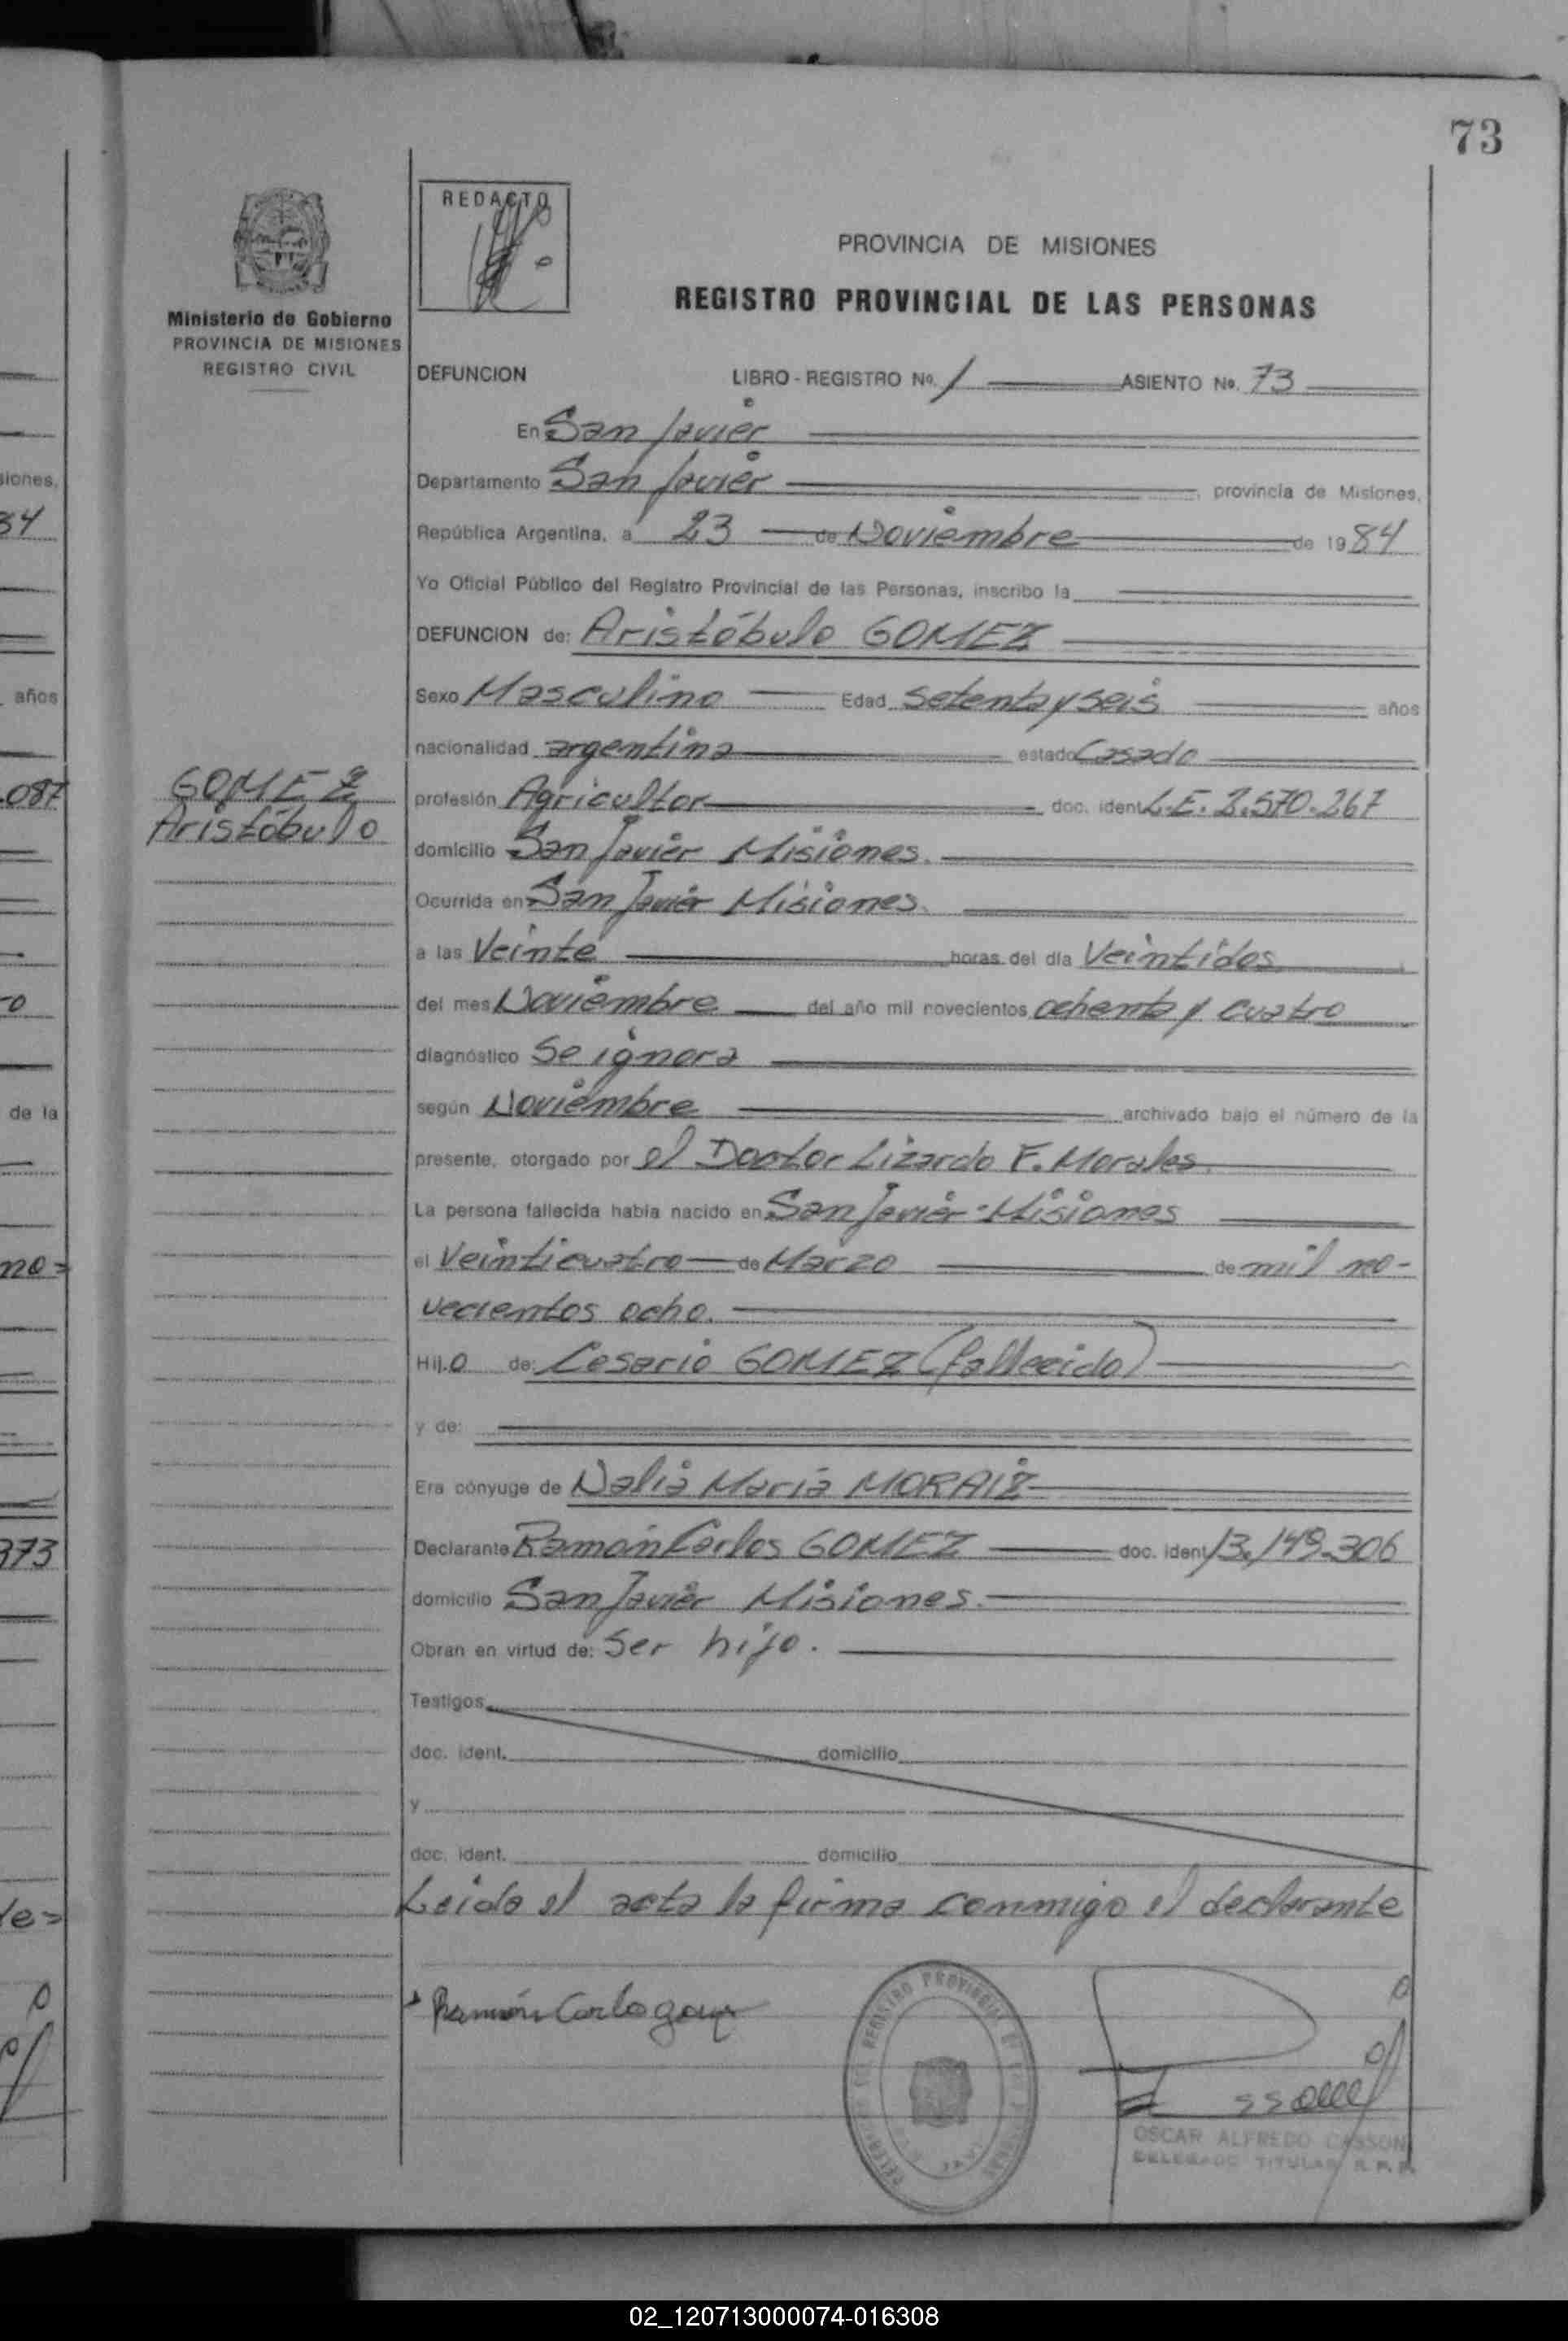 73
REDACTO
PROVINCIA DE MISIONES
REGISTRO PROVINCIAL DE LAS PERSONAS
Ministerio de Gobierno
PROVINCIA DE MISIONES
REGISTRO CIVIL
DEFUNCION LIBRO - REGISTRO Nº. 1 ASIENTO Nº. 73
En San Javier
Departamento San Javier, provincia de Misiones,
República Argentina, a 23 de Noviembre de 1984
Yo Oficial Público del Registro Provincial de las Personas, inscribo la
DEFUNCION de: Aristóbulo GOMEZ
Sexo Masculino Edad setenta y seis años
nacionalidad argentina estado Casado
GOMEZ
Aristóbulo
profesión Agricultor doc. ident. L.E. 2.570.267
domicilio San Javier Misiones.
Ocurrida en San Javier Misiones.
a las Veinte horas del día Veintidos
del mes Noviembre del año mil novecientos ochenta y cuatro
diagnóstico Se ignora
según Noviembre archivado bajo el número de la
presente, otorgado por el Doctor Lizardo F. Morales
La persona fallecida había nacido en San Javier - Misiones
el Veinticuatro de Marzo de mil no-
vecientos ocho.
Hijo de: Cesario GOMEZ (fallecido)
y de:
Era cónyuge de Nalia María MORAIZ
Declarante Ramón Carlos GOMEZ doc. ident 13.149.306
domicilio San Javier Misiones.
Obran en virtud de: Ser hijo.
Testigos
doc. ident. domicilio
y
doc. ident. domicilio
Leida el acta la firma conmigo el declarante
Ramón Carlo
REGISTRO PROVINCIAL DE LAS PERSONAS
OSCAR ALFREDO CASSON
DELEGADO TITULAR R.P.P.
siones,
84
años
.087
de la
no=
973
te=
02_120713000074-016308